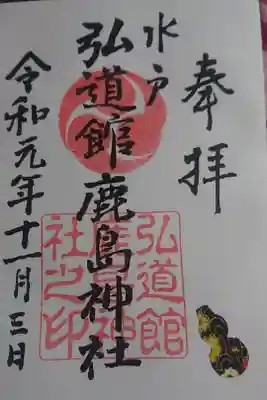 奉拝
水戸
弘道館鹿島神社
令和元年十一月三日
弘道館
鹿島神
社之印